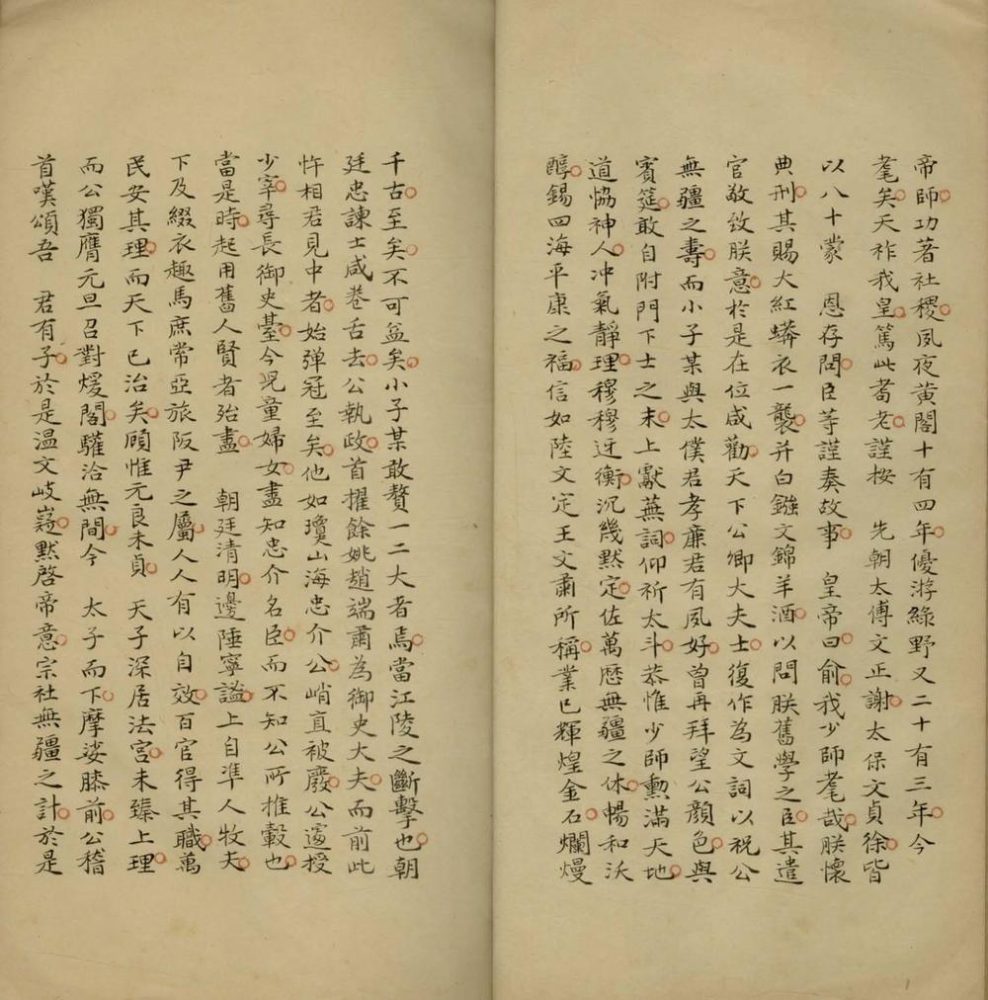 帝師功著社稷夙夜黄閣十有四年優游綠野又二十有三年今
耄矣天祚我皇篤此耈老謹桉　先朝太傅文正謝太保文貞徐皆
以八十蒙　恩存問臣等謹奏故事　皇帝曰俞我少師耄哉朕懷
典刑其賜大紅蟒衣一襲并白鏹文錦羊酒以問朕舊學之臣其遣
官敬致朕意於是在位咸勸天下公卿大夫士復作為文詞以祝公
無疆之壽而小子某與太僕君孝廉君有夙好曾再拜望公顔色與
賓筵敢自附門下士之末上獻蕪詞仰祈太斗恭惟少師勲滿天地
道恊神人冲氣靜理穆穆迓衡沉幾黙定佐萬歷無疆之休暢和沃
醇錫四海平康之福信如陸文定王文肅所稱業已輝煌金石爛熳
千古至矣不可益矣小子某敢贅一二大者焉當江陵之斷擊也朝
廷忠諫士咸巷舌去公執政首擢餘姚趙端肅為御史大夫而前此
忤相君見中者始弹冠至矣他如瓊山海忠介公峭直被廢公遽授
少宰尋長御史臺今児童婦女盡知忠介名臣而不知公所推轂也
當是時起用舊人賢者殆盡　朝廷清明邊陲寧謐上自準人牧夫
下及綴衣趣馬庶常亞旅阪尹之屬人人有以自效百官得其職萬
民安其理而天下已治矣顧惟元良未貞　天子深居法宮未臻上理
而公獨膺元旦召對煖閣驩洽無間今　太子而下摩娑膝前公稽
首嘆頌吾　君有子於是温文岐嶷黙啓帝意宗社無疆之計於是